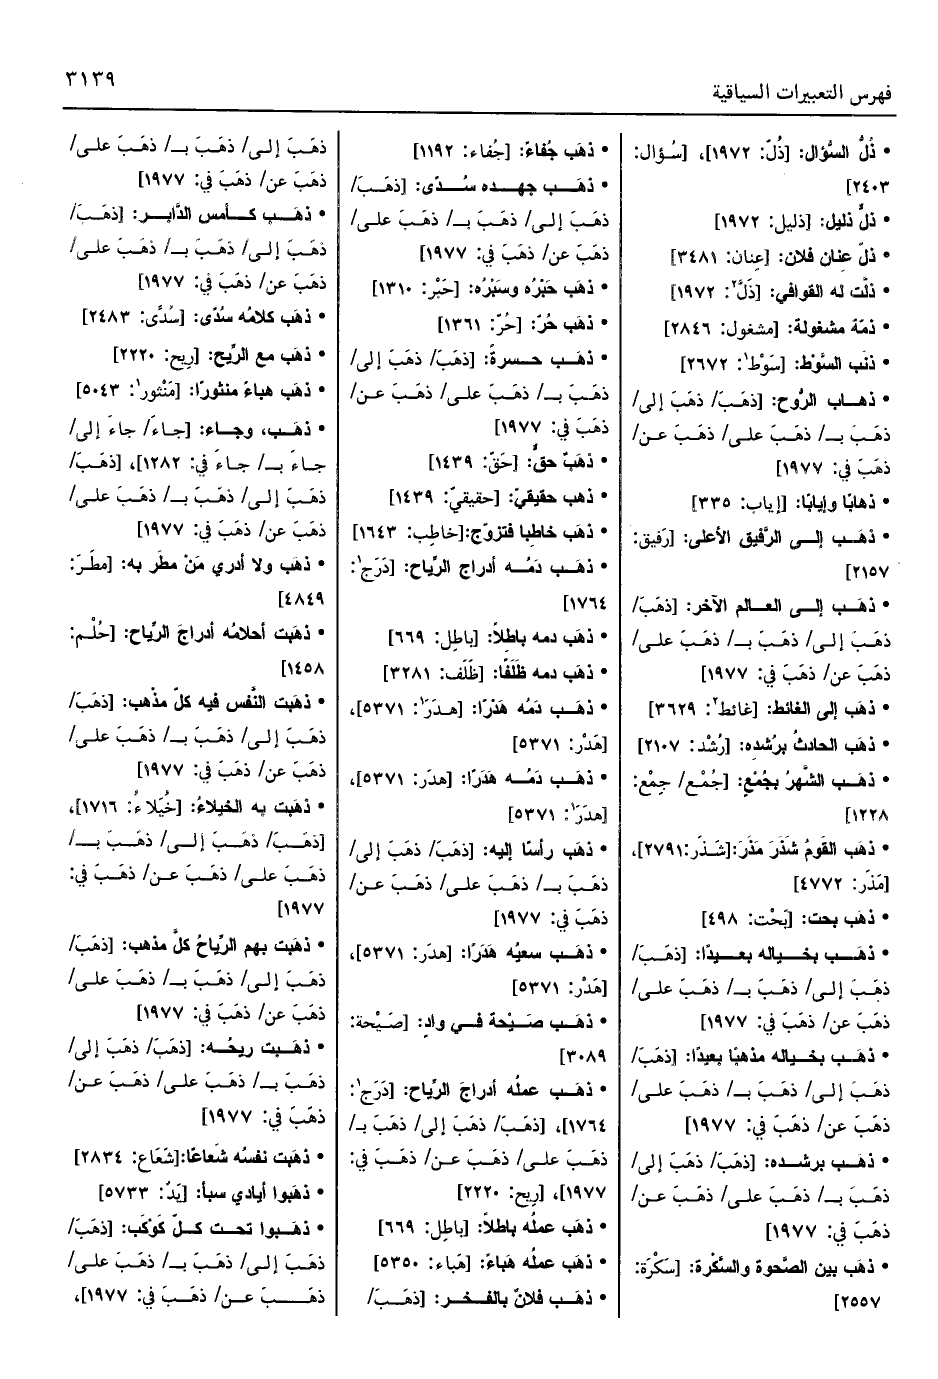 فهرس التعبيرات السياقية
٣١٣٩
• ذُلُّ السُّؤال: [ذُلّ: ١٩٧٢]، [سُؤال:
٢٤٠٣]
• ذلٌّ ذليل: [ذليل: ١٩٧٢]
• ذلّ عنان فلان: [عِنان: ٣٤٨١]
• ذلّت له القوافي: [ذَلَّ٢: ١٩٧٢]
• ذمّة مشغولة: [مشغول: ٢٨٤٦]
• ذنَب السَّوْط: [سَوْط١: ٢٦٧٢]
• ذهـاب الرُّوح: [ذهَـبَ/ ذهَبَ إلى/
ذهَبَ بـ/ ذهَـبَ على/ ذهَبَ عـن/
ذهَبَ في: ١٩٧٧]
• ذهابًا وإيابًا: [إياب: ٣٣٥]
• ذهَـب إلـى الرَّفيق الأعلى: [رَفيق:
٢١٥٧]
• ذهَـب إلـى العـالم الآخر: [ذهَبَ/
ذهَبَ إلى/ ذهَبَ بـ/ ذهَـبَ على/
ذهَبَ عن/ ذهَبَ في: ١٩٧٧]
• ذهَب إلى الغائط: [غائط٢: ٣٦٢٩]
• ذهَب الحادثُ برُشده: [رُشْد: ٢١٠٧]
• ذهَـب الشَّهرُ بجُمْعٍ: [جُمْـع/ جِمْع:
١٢٢٨]
• ذهَب القَومُ شذَرَ مَذَرَ:[شَـذَر:٢٧٩١]،
[مَذَر: ٤٧٧٢]
• ذهَب بحت: [بَحْت: ٤٩٨]
• ذهَـب بخـياله بعـيدًا: [ذهَـبَ/
ذهَبَ إلى/ ذهَبَ بـ/ ذهَـبَ على/
ذهَبَ عن/ ذهَبَ في: ١٩٧٧]
• ذهَـب بخياله مذهبًا بعيدًا: [ذهَبَ/
ذهَبَ إلى/ ذهَبَ بـ/ ذهَـبَ على/
ذهَبَ عن/ ذهَبَ في: ١٩٧٧]
• ذهَـب برشده: [ذهَبَ/ ذهَبَ إلى/
ذهَبَ بـ/ ذهَبَ على/ ذهَبَ عـن/
ذهَبَ في: ١٩٧٧]
• ذهَب بين الصَّحوة والسَّكْرة: [سَكْرَة:
٢٥٥٧]
• ذهَب جُفاءً: [جُفاء: ١١٩٢]
• ذهَـب جهـده سُـدًى: [ذهَـبَ/
ذهَبَ إلى/ ذهَبَ بـ/ ذهَبَ على/
ذهَبَ عن/ ذهَبَ في: ١٩٧٧]
• ذهَب حَبْرُه وسَبْرُه: [حَبْر: ١٣١٠]
• ذهَب حُرّ: [حُرّ: ١٣٦١]
• ذهَـب حـسرةً: [ذهَبَ/ ذهَبَ إلى/
ذهَبَ بـ/ ذهَبَ على/ ذهَبَ عـن/
ذهَبَ في: ١٩٧٧]
• ذهَبٌ حقٌّ: [حَقّ: ١٤٣٩]
• ذهَب حقيقيّ: [حقيقيّ: ١٤٣٩]
• ذهَب خاطبا فتزوّج:[خاطِب: ١٦٤٣]
• ذهَـب دَمُـه أدراج الرِّياح: [دَرَج١:
١٧٦٤]
• ذهَب دمه باطلاً: [باطِل: ٦٦٩]
• ذهَب دمه ظَلَفًا: [ظَلَف: ٣٢٨١]
• ذهَـب دَمُه هَدْرًا: [هـدَرَ١: ٥٣٧١]،
[هَدْر: ٥٣٧١]
• ذهَـب دَمُـه هَدَرًا: [هدَر: ٥٣٧١]،
[هدَرَ١: ٥٣٧١]
• ذهَب رأسًا إليه: [ذهَبَ/ ذهَبَ إلى/
ذهَبَ بـ/ ذهَبَ على/ ذهَبَ عـن/
ذهَبَ في: ١٩٧٧]
• ذهَـب سعيُه هَدَرًا: [هدَر: ٥٣٧١]،
[هَدْر: ٥٣٧١]
• ذهَـب صَـيْحة فـي واد: [صَـيْحة:
٣٠٨٩]
• ذهَـب عملُه أدراجَ الرِّياح: [دَرَج١:
١٧٦٤]، [ذهَـبَ/ ذهَبَ إلى/ ذهَبَ بـ/
ذهَـبَ علـى/ ذهَبَ عـن/ ذهَـبَ في:
١٩٧٧]، [رِيح: ٢٢٢٠]
• ذهَب عملُه باطلاً: [باطِل: ٦٦٩]
• ذهَب عملُه هَباءً: [هَباء: ٥٣٥٠]
• ذهَـب فلانٌ بالفـخـر: [ذهَـبَ/
ذهَبَ إلى/ ذهَبَ بـ/ ذهَبَ على/
ذهَبَ عن/ ذهَبَ في: ١٩٧٧]
• ذهَـب كـأمس الدَّابـر: [ذهَـبَ/
ذهَبَ إلى/ ذهَبَ بـ/ ذهَبَ على/
ذهَبَ عن/ ذهَبَ في: ١٩٧٧]
• ذهَب كلامُه سُدًى: [سُدًى: ٢٤٨٣]
• ذهَب مع الرِّيح: [رِيح: ٢٢٢٠]
• ذهَب هباءً منثورًا: [مَنْثور١: ٥٠٤٣]
• ذهَـب، وجـاء: [جـاءَ/ جاءَ إلى/
جـاءَ بـ/ جـاءَ في: ١٢٨٢]، [ذهَـبَ/
ذهَبَ إلى/ ذهَبَ بـ/ ذهَبَ على/
ذهَبَ عن/ ذهَبَ في: ١٩٧٧]
• ذهَب ولا أدري مَنْ مطَر به: [مطَرَ:
٤٨٤٩]
• ذهَبت أحلامُه أدراجَ الرِّياح: [حُلْم:
١٤٥٨]
• ذهَبت النَّفس فيه كلّ مذْهب: [ذهَبَ/
ذهَبَ إلى/ ذهَبَ بـ/ ذهَبَ على/
ذهَبَ عن/ ذهَبَ في: ١٩٧٧]
• ذهَبت به الخيلاءُ: [خُيَلاءُ: ١٧١٦]،
[ذهَـبَ/ ذهَـبَ إلـى/ ذهَـبَ بــ/
ذهَـبَ علـى/ ذهَـبَ عـن/ ذهَـبَ في:
١٩٧٧]
• ذهَبت بهم الرِّياحُ كلَّ مذهب: [ذهَبَ/
ذهَبَ إلى/ ذهَبَ بـ/ ذهَبَ على/
ذهَبَ عن/ ذهَبَ في: ١٩٧٧]
• ذهَـبت ريحُـه: [ذهَبَ/ ذهَبَ إلى/
ذهَبَ بـ/ ذهَبَ على/ ذهَبَ عـن/
ذهَبَ في: ١٩٧٧]
• ذهَبت نفسُه شَعاعًا:[شَعَاع: ٢٨٣٤]
• ذهَبوا أيادي سبأ: [يَدّ: ٥٧٣٣]
• ذهَـبوا تحـت كـلّ كَوْكَب: [ذهَبَ/
ذهَبَ إلى/ ذهَبَ بـ/ ذهَبَ على/
ذهَــبَ عـن/ ذهَبَ في: ١٩٧٧]،